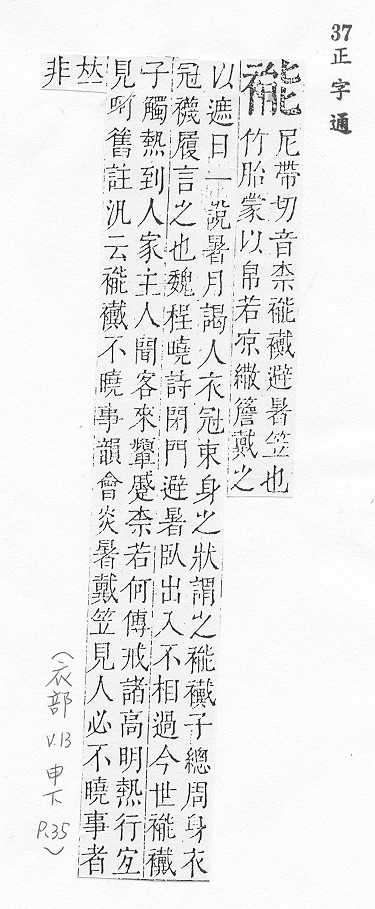 37正字通
褦
尼帶切音柰褦襶避暑笠也
竹胎蒙以帛若凉繖簷戴之
以遮日一說暑月謁人衣冠束身之狀謂之褦襶子總周身衣
冠襪履言之也魏程曉詩閉門避暑臥出入不相過今世褦襶
子觸熱到人家主人聞客來顰蹙柰若何傳戒諸高明熱行宜
見呵舊註汎云褦襶不曉事韻會炎暑戴笠見人必不曉事者
𠀤非
(衣部 V.13 申下 P.35)